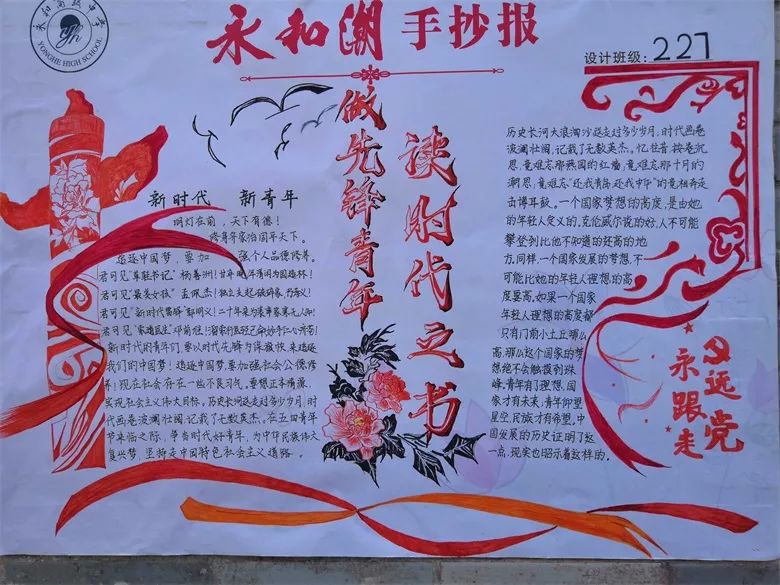 永和高级中学
YONGHE HIGH SCHOOL
永和潮手抄报
设计班级:227
做先锋青年
读时代之书
新时代 新青年
明灯在前,天下有德!
修身齐家治国平天下。
追逐中国梦,要加强个人品德修养。
君可见"草鞋书记"杨善洲!
君可见"最美女孩"孟佩杰!
君可见"新时代雷锋"郭明义!二十年来为
君可见
新时代的青年们,要以时代先锋为
我们的中国梦!追逐中国梦,要加强社会公德修
养!现在社会存在一些不良习气。要想正本清源,
实现社会主义伟大目标。历史长河走过多少岁月,时
代画卷波澜壮阔,记载了无数英杰。在五四青年
节来临之际,争当时代好青年,为中华民族伟大
复兴梦,坚持走中国特色社会主义道路。
历史长河大浪淘沙走过多少岁月,时代画卷
波澜壮阔,记载了无数英杰。忆往昔
思,竟难忘那燕园的红墙,竟难忘那十月的
潮思,竟难忘"还我青岛,还我中华"的竟相奔走
击缚耳鼓。一个国家梦想的高度,是由她
的年轻人定义的,克伦威尔说的好,人不可能
攀登到比他不知道的还高的地
方,同样,一个国家发展的梦想,不
可能比她的年轻人理想的高
度更高,如果一个国家
年轻人理想的高度都
只有门前小土丘那么
高,那么这个国家的梦
想绝不会触摸到珠
峰,青年有了理想,国
家才有未来,青年仰望
星空,民族才有希望。中
国发展的历史证明了这
一点,现实也昭示着这样的。
永远跟党走